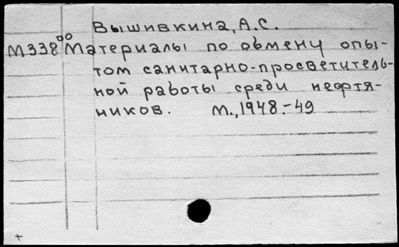 Вышивкина, А.С.
М338⁰⁰ Материалы по обмену опы-
том санитарно-просветитель-
ной работы среди нефтя-
ников. М., 1948.-49
+